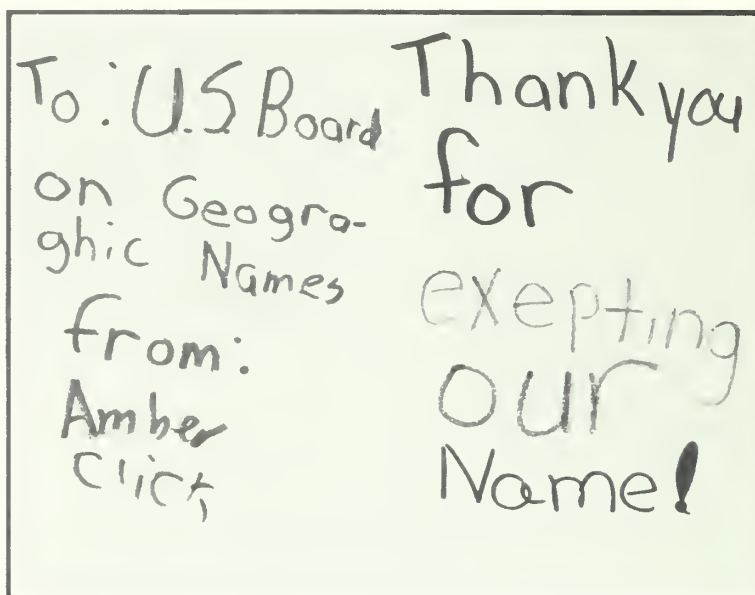 To: U.S Board
on Geogra-
ghic Names
from:
Amber
Click
Thank you
for
exepting
our
Name!